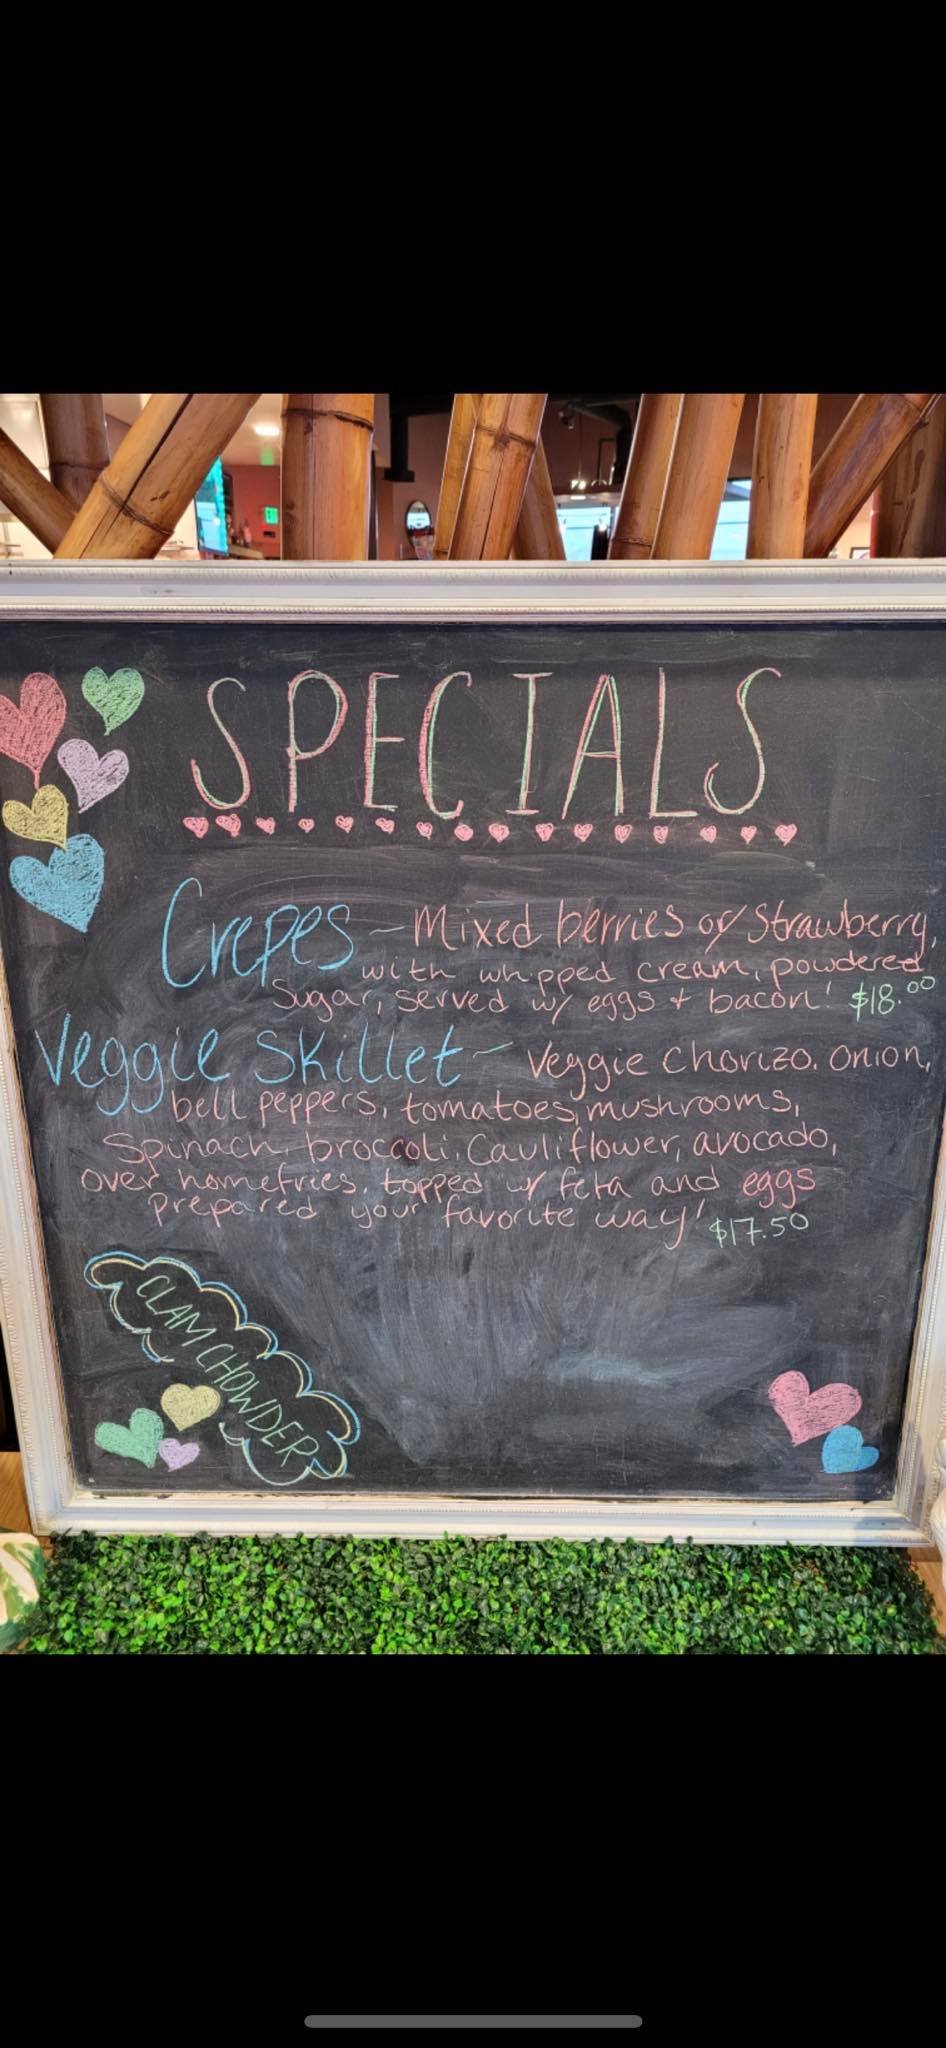 SPECIALS
Crepes - Mixed berries or Strawberry,
with whipped cream, powdered
Sugar, served w/ eggs + bacon! $18.00
Veggie Skillet - Veggie Chorizo, onion,
bell peppers, tomatoes, mushrooms,
Spinach, broccoli, Cauliflower, avocado,
over homefries, topped w/ feta and eggs
Prepared your favorite way! $17.50
CLAM CHOWDER